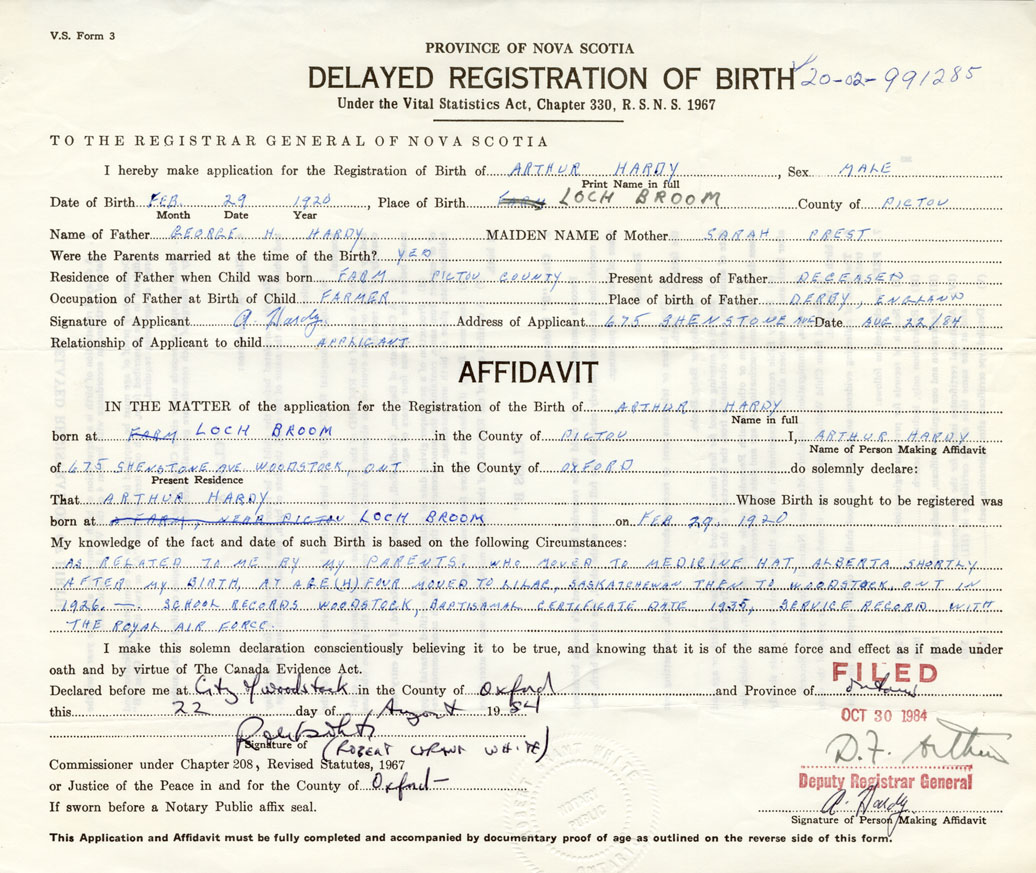 V.S. Form 3
PROVINCE OF NOVA SCOTIA
DELAYED REGISTRATION OF BIRTH 20-02-991285
Under the Vital Statistics Act, Chapter 330, R. S. N. S. 1967
TO THE REGISTRAR GENERAL OF NOVA SCOTIA
I hereby make application for the Registration of Birth of ARTHUR HARDY, Sex MALE
Print Name in full
Date of Birth FEB. 29 1920, Place of Birth FARM LOCH BROOM County of PICTOU
Month Date Year
Name of Father GEORGE H. HARDY MAIDEN NAME of Mother SARAH PREST
Were the Parents married at the time of the Birth? YES
Residence of Father when Child was born FARM PICTOU COUNTY Present address of Father DECEASED
Occupation of Father at Birth of Child FARMER Place of birth of Father DERBY, ENGLAND
Signature of Applicant A. Hardy Address of Applicant 675 SHENSTONE AVE Date AUG 22/84
Relationship of Applicant to child APPLICANT
AFFIDAVIT
IN THE MATTER of the application for the Registration of the Birth of ARTHUR HARDY
Name in full
born at FARM LOCH BROOM in the County of PICTOU I, ARTHUR HARDY
Name of Person Making Affidavit
of 675 SHENSTONE AVE WOODSTOCK, ONT in the County of OXFORD do solemnly declare:
Present Residence
That ARTHUR HARDY Whose Birth is sought to be registered was
born at A FARM, NEAR PICTOU LOCH BROOM on FEB 29, 1920
My knowledge of the fact and date of such Birth is based on the following Circumstances:
AS RELATED TO ME BY MY PARENTS. WHO MOVED TO MEDICINE HAT, ALBERTA SHORTLY
AFTER MY BIRTH, AT AGE (4) FOUR MOVED TO LILAC, SASKATCHEWAN THEN TO WOODSTOCK, ONT IN
1926. — SCHOOL RECORDS WOODSTOCK, BAPTISAMAL CERTIFICATE DATE 1935, SERVICE RECORD WITH
THE ROYAL AIR FORCE.
I make this solemn declaration conscientiously believing it to be true, and knowing that it is of the same force and effect as if made under
oath and by virtue of The Canada Evidence Act.
FILED
Declared before me at City of Woodstock in the County of Oxford and Province of Ontario
this 22 day of August 1984
OCT 30 1984
Signature of (ROBERT GRANT WHITE)
D.F.
Commissioner under Chapter 208, Revised Statutes, 1967
Deputy Registrar General
or Justice of the Peace in and for the County of Oxford
A. Hardy
If sworn before a Notary Public affix seal.
Signature of Person Making Affidavit
This Application and Affidavit must be fully completed and accompanied by documentary proof of age as outlined on the reverse side of this form.